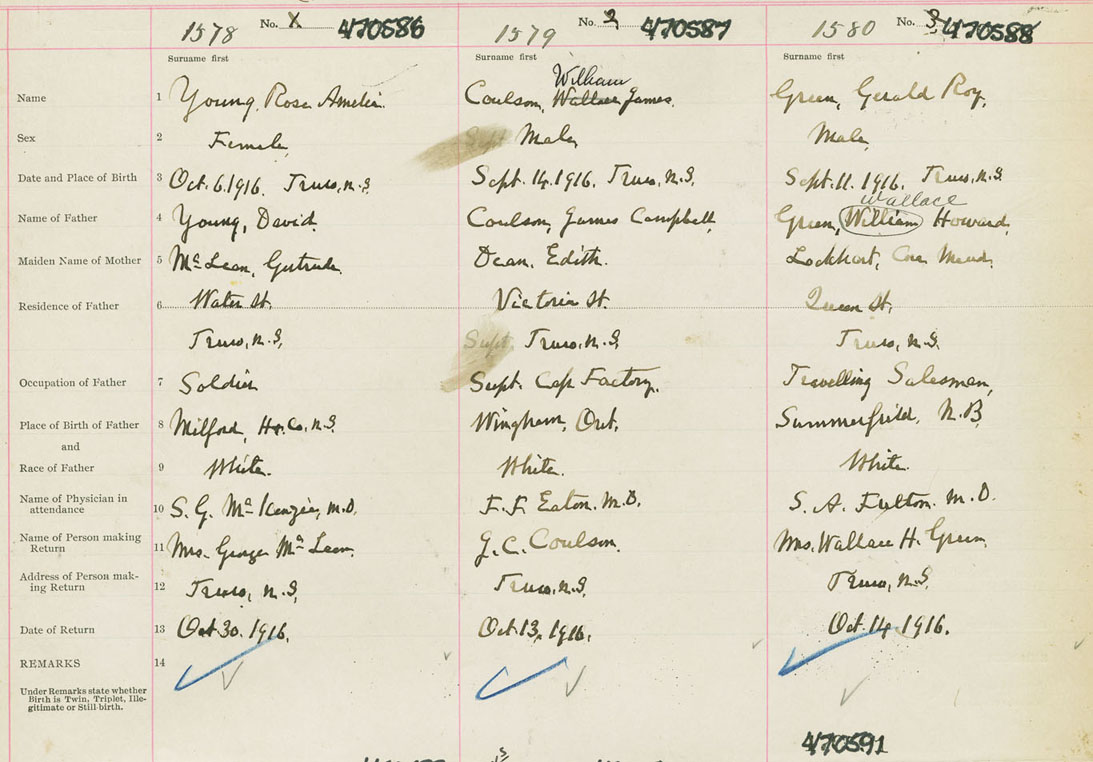 1578 No. X 470586 1579 No. 2 470587 1580 No. 3 470588
Surname first Surname first Surname first
William
Name 1 Young, Rose Amelia. Coulson, Wallace James. Green, Gerald Roy,
Sex 2 Female, Sept Male, Male,
Date and Place of Birth 3 Oct. 6. 1916. Truro, N.S, Sept. 14. 1916. Truro, N.S, Sept. 11. 1916. Truro, N.S.
Wallace
Name of Father 4 Young, David. Coulson, James Campbell, Green, William Howard,
Maiden Name of Mother 5 McLean, Gertrude. Dean, Edith. Lockhart, Maud,
Residence of Father 6 Water St. Victoria St. Queen St,
Truro, N.S, Supt. Truro, N.S, Truro, N.S.
Occupation of Father 7 Soldier Supt. Cap Factory. Travelling Salesman,
Place of Birth of Father 8 Milford, Hx. Co. N.S. Wingham, Ont. Summerfield, N.B,
and
Race of Father 9 White. White. White.
Name of Physician in
attendance 10 S. G. McKenzie, M.D. F. F. Eaton. M.D. S. A. Fulton. M.D.
Name of Person making
Return 11 Mrs. George McLean. J. C. Coulson. Mrs. Wallace H. Green,
Address of Person mak-
ing Return 12 Truro, N.S, Truro, N.S, Truro, N.S,
Date of Return 13 Oct 30. 1916. Oct. 13, 1916. Oct. 14. 1916.
REMARKS 14
Under Remarks state whether
Birth is Twin, Triplet, Ille-
gitimate or Still-birth.
470591